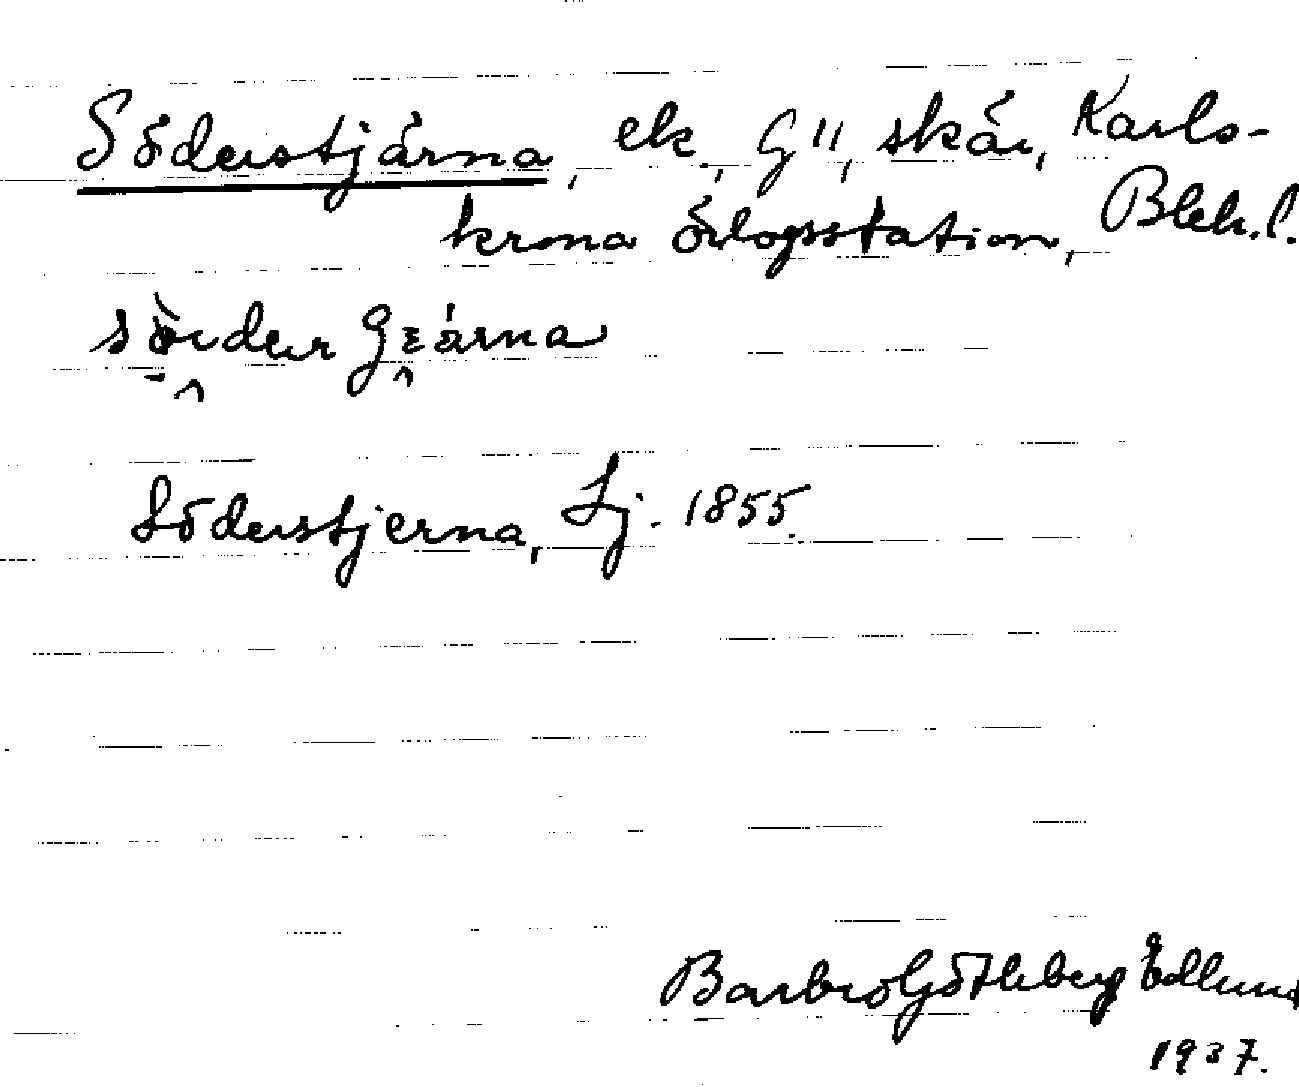 Söderstjärna, ek., G11, skär, Karls-
krona örlogsstation, Blek. l.
Söderstjerna, Lj. 1855.
Barbro Götleberg Edlund
1937.